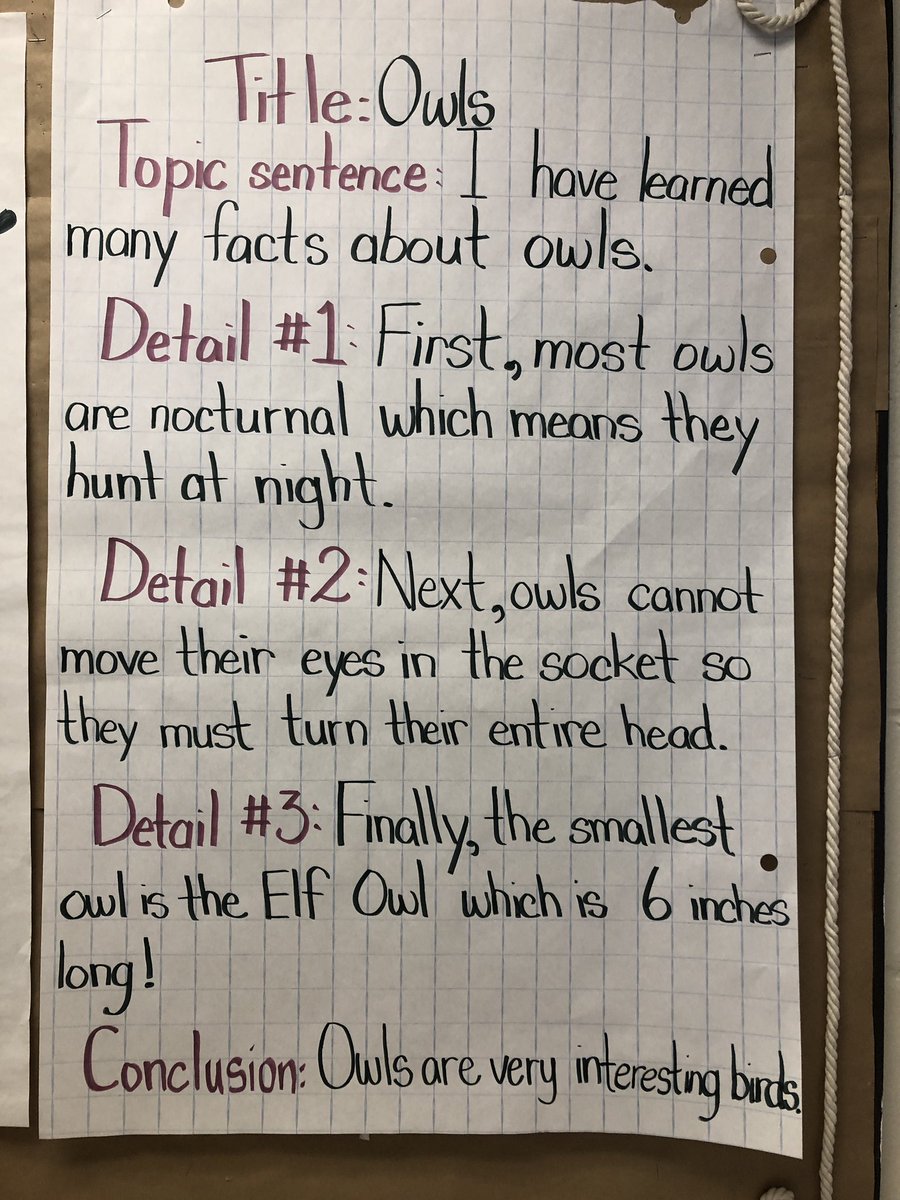 Title: Owls
Topic sentence: I have learned
many facts about owls.
Detail #1: First, most owls
are nocturnal which means they
hunt at night.
Detail #2: Next, owls cannot
move their eyes in the socket so
they must turn their entire head.
Detail #3: Finally, the smallest
owl is the Elf Owl which is 6 inches
long!
Conclusion: Owls are very interesting birds.